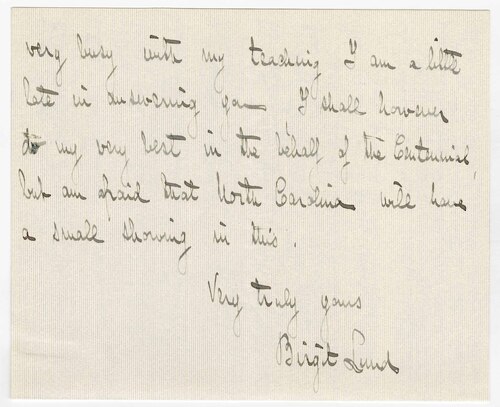 very busy with my teaching I am a little
late in answering you I shall however
do my very best in the behalf of the Centennial,
but am afraid that North Carolina will have
a small showing in this.
Very truly yours
Birgit Lund